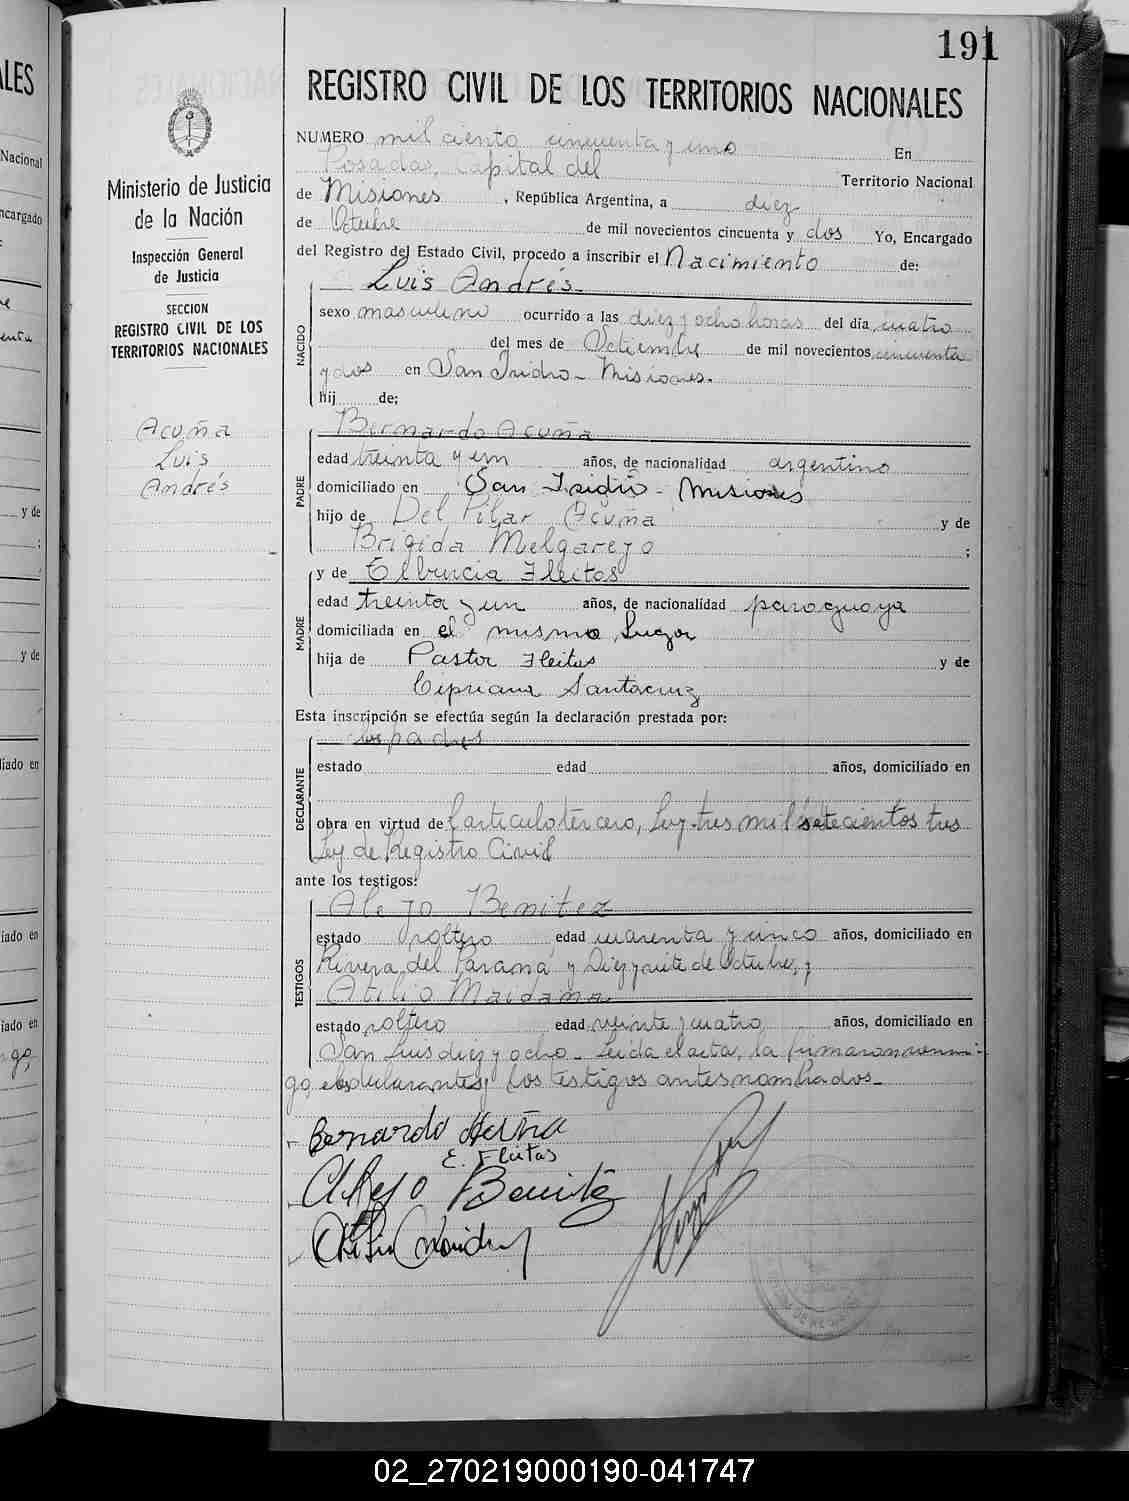 191
REGISTRO CIVIL DE LOS TERRITORIOS NACIONALES
Ministerio de Justicia
de la Nación
Inspección General
de Justicia
SECCION
REGISTRO CIVIL DE LOS
TERRITORIOS NACIONALES
Acuña
Luis
Andrés
NUMERO mil ciento cincuenta y uno En
Posadas, Capital del Territorio Nacional
de Misiones, República Argentina, a diez
de Octubre de mil novecientos cincuenta y dos Yo, Encargado
del Registro del Estado Civil, procedo a inscribir el Nacimiento de:
Luis Andrés
NACIDO
sexo masculino ocurrido a las diez y ocho horas del día cuatro
del mes de Setiembre de mil novecientos cincuenta
y dos en San Isidro - Misiones.
hij de;
Bernardo Acuña
PADRE
edad treinta y un años, de nacionalidad argentino
domiciliado en San Isidro - Misiones
hijo de Del Pilar Acuña y de
Brigida Melgarejo ;
y de Elbucia Fleitas
MADRE
edad treinta y un años, de nacionalidad paraguaya
domiciliada en el mismo lugar
hija de Pastor Fleitas y de
Cipriana Santacruz
Esta inscripción se efectúa según la declaración prestada por:
los padres
DECLARANTE
estado edad años, domiciliado en
obra en virtud del articulo tercero, Ley tres mil setecientos tres
Ley de Registro Civil
ante los testigos:
Alejo Benitez
TESTIGOS
estado soltero edad cuarenta y cinco años, domiciliado en
Rivera del Paraná y Diez y siete de Octubre, y
Atilio Maidana
estado soltero edad veinte y cuatro años, domiciliado en
San Luis diez y ocho - Leida el acta, la firmaron conmi-
go, los declarantes y los testigos antes nombrados -
Bernardo Acuña
E. Fleitas
Alejo Benitez
Atilio Maidana
02_270219000190-041747